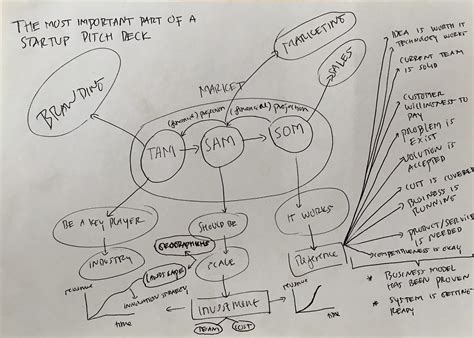 THE MOST IMPORTANT PART OF A
STARTUP PITCH DECK
BRANDING
MARKETING
SALES
MARKET
(financial) projection
(financial) projection
TAM
SAM
SOM
IDEA IS WORTH IT
TECHNOLOGY WORKS
CURRENT TEAM
IS SOLID
CUSTOMER
WILLINGNESS TO
PAY
PROBLEM IS
EXIST
SOLUTION IS
ACCEPTED
COST IS COVERED
BUSINESS IS
RUNNING
PRODUCT/SERVICE
IS NEEDED
COMPETITIVENESS IS OKAY
* BUSINESS MODEL
HAS BEEN PROVEN
* SYSTEM IS GETTING
READY
BE A KEY PLAYER
SHOULD BE
IT WORKS
INDUSTRY
GEOGRAPHIES
LANDSCAPE
SCALE
Reference
revenue
INNOVATION STRATEGY
time
INVESTMENT
TEAM
COST
revenue
time